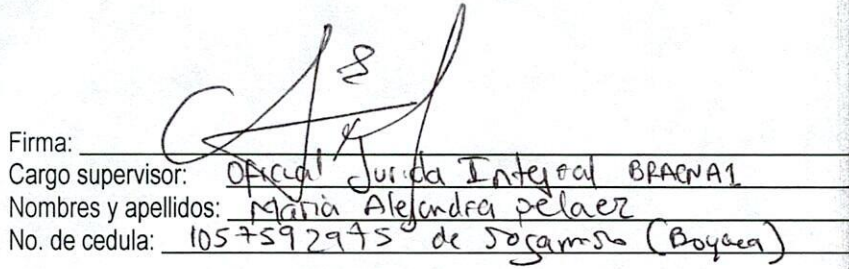 Firma:
Cargo supervisor: Oficial Jurida Integral BRACNA1
Nombres y apellidos: Maria Alejandra pelaez
No. de cedula: 1057592975 de Sogamoso (Boyaca)